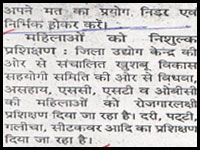 अपने मत का प्रयोग निडर एवं
निर्भिक होकर करें।
महिलाओं को निशुल्क
प्रशिक्षण : जिला उद्योग केन्द्र की
ओर से संचालित खुशबू विकास
सहयोगी समिति की ओर से विधवा,
असहाय, एससी, एसटी व ओबीसी
की महिलाओं को रोजगारलक्षी
प्रशिक्षण दिया जा रहा है। दरी, पट्टी,
गलीचा, सीटकवर आदि का प्रशिक्षण
दिया जा रहा है।